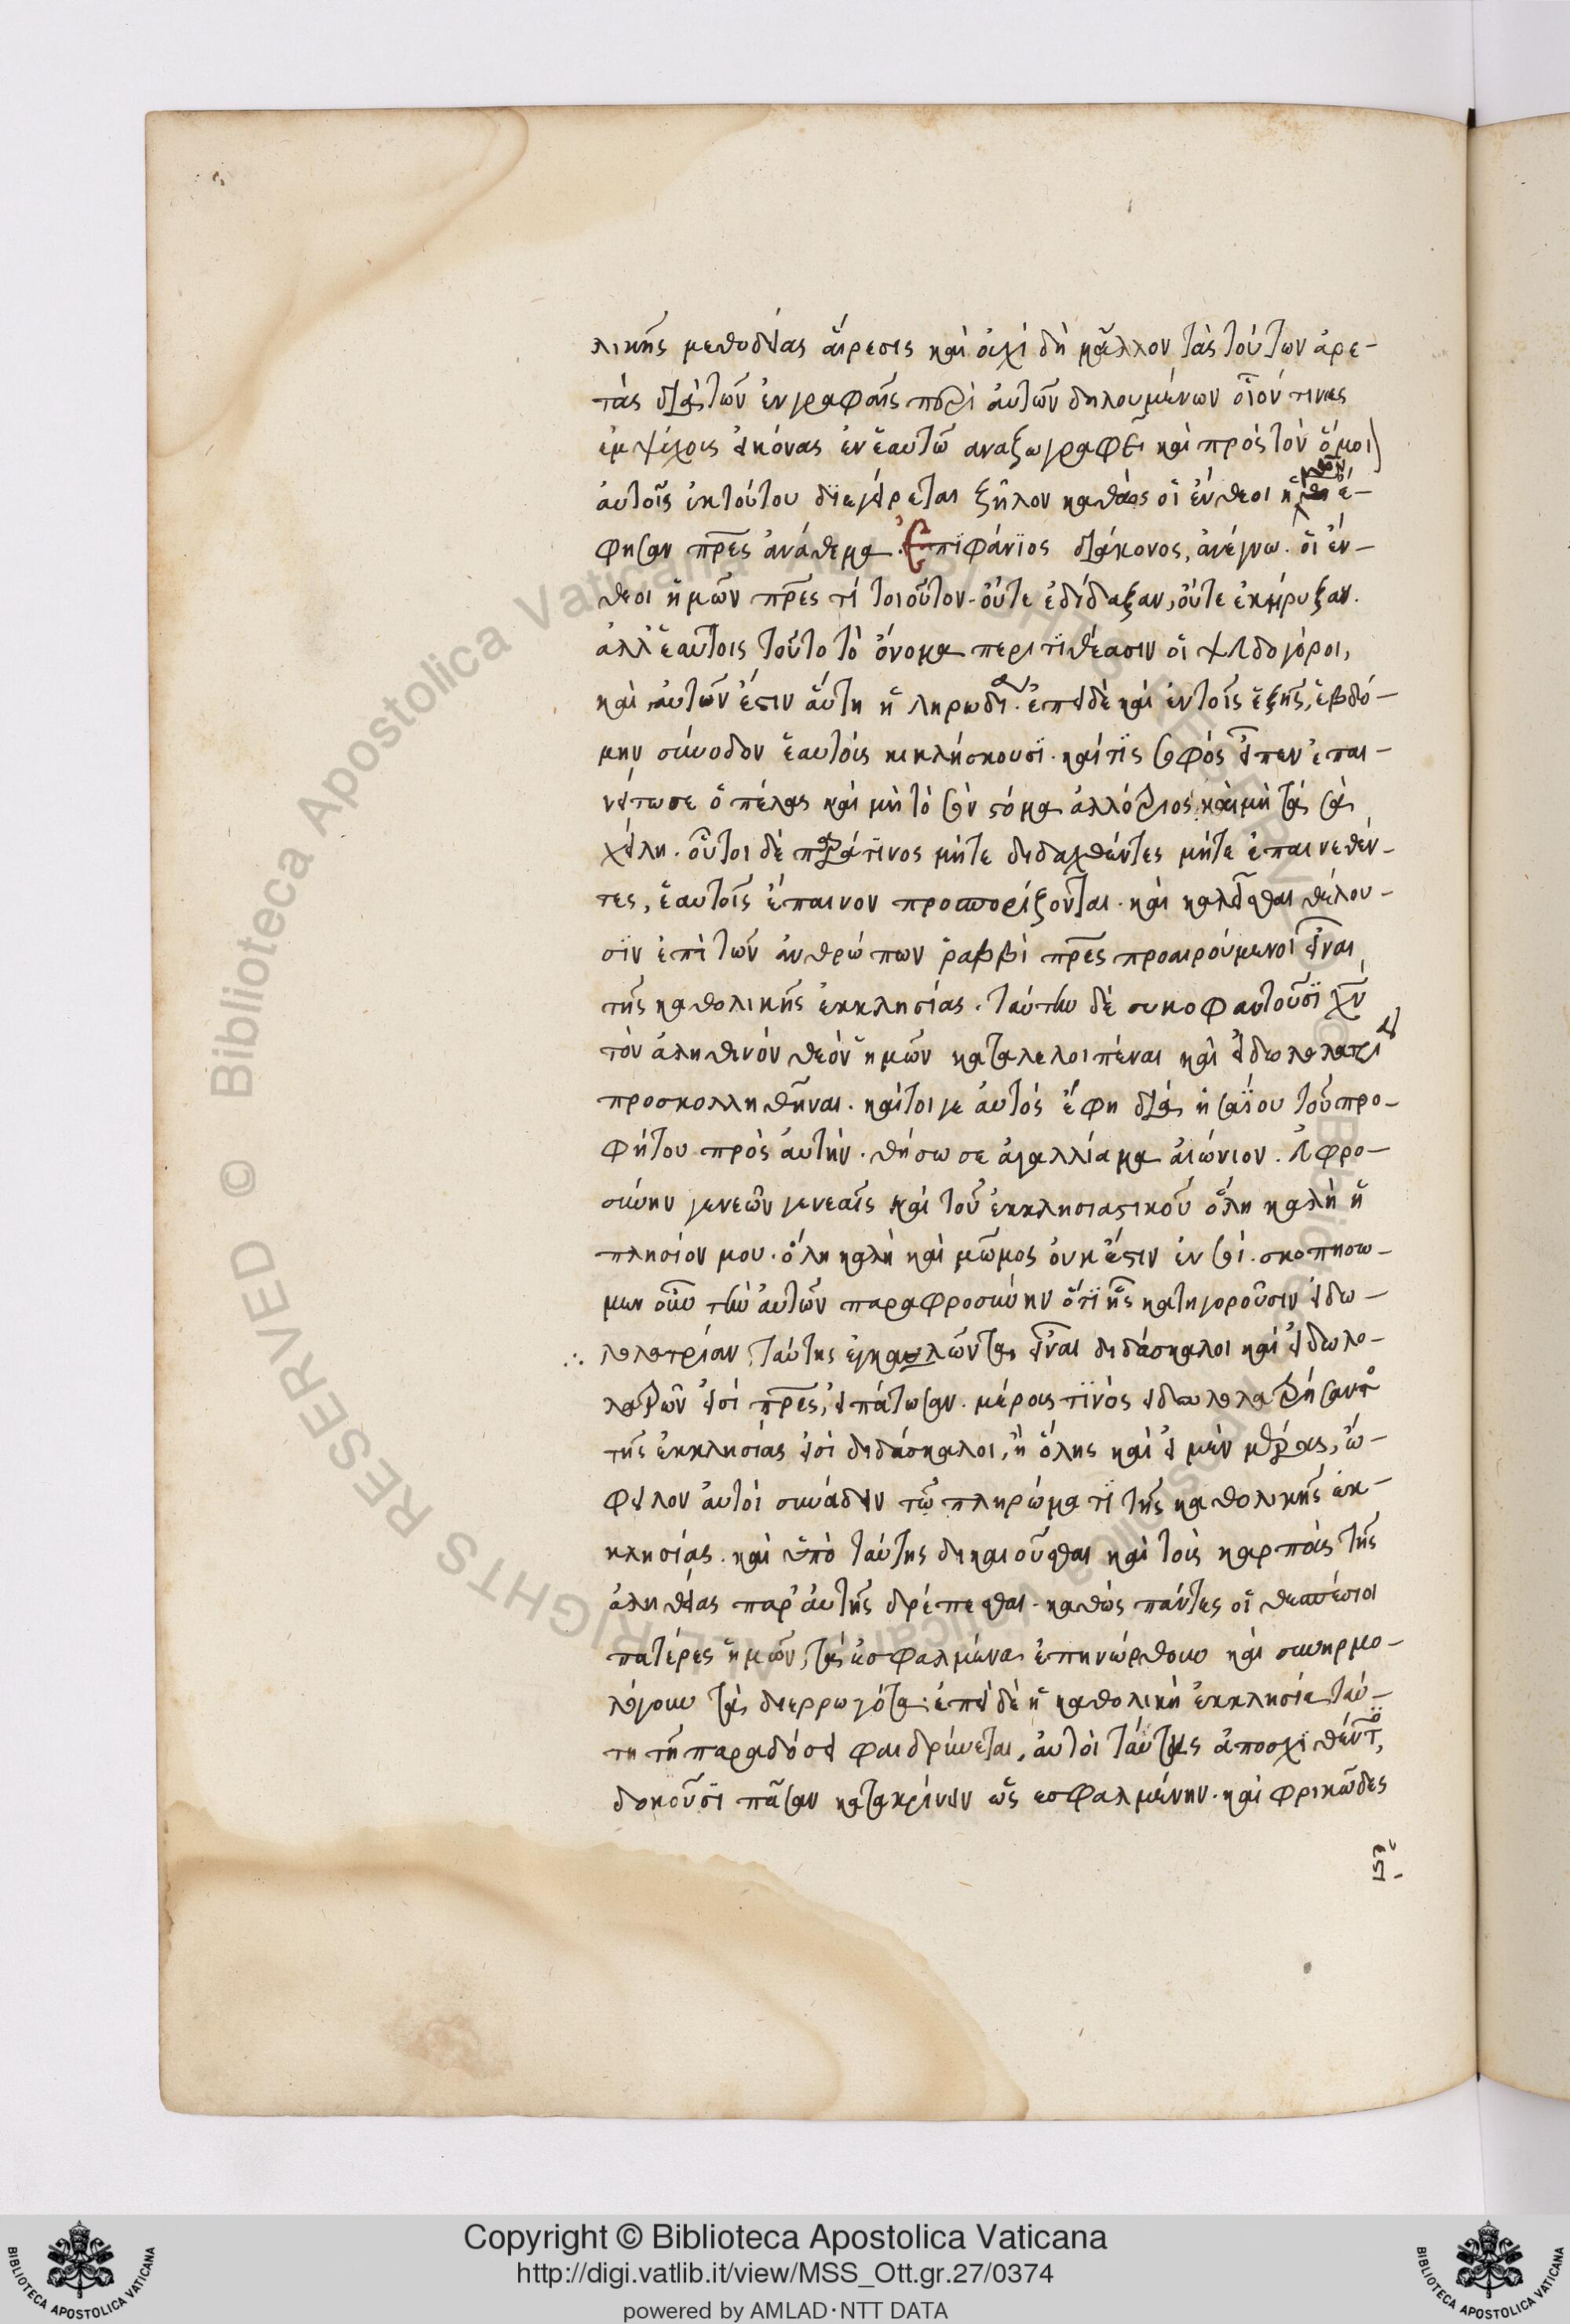 λικῆς μεθοδείας αἵρεσις καὶ οὐχὶ δὴ μᾶλλον τὰς τούτων ἀρε-
τὰς διὰ τῶν ἐν γραφαῖς περὶ αὐτῶν δηλουμένων οἷόν τινας
ἐμψύχοις εἰκόνας ἐν ἑαυτῶ αναζωγραφεῖ καὶ πρὸς τὸν ὅμοι
αὐτοῖς ἐκ τούτου διεγείρεται ζῆλον καθὼς οἱ ἔνθεοι ἡμῶν ἔ-
φησαν πρες ἀνάθεμα. Ἐπϊφάνϊος διάκονος, ἀνέγνω. οἱ ἔν-
θεοι ἡμῶν πρες τί τοιοῦτον. οὔτε ἐδίδαξαν, οὔτε ἐκήρυξαν.
ἀλλ' ἑαυτοις τοῦτο τὸ ὄνομα περιτϊθέασιν οἱ ψευδογόροι,
καὶ αὐτῶν ἐστιν αὕτη ἡ ληρωδία. ἐπεὶ δὲ καὶ ἐν τοῖς ἑξῆς, ἑβδό-
μην σύνοδον ἑαυτοὺς κικλήσκουσϊ. καί τϊς σοφός εἶπεν ἐπαι-
νείτωσε ὁ πέλας καὶ μὴ τὸ σὸν στόμα ἀλλότριος καὶ μὴ τὰ σὰ
χείλη. οὗτοι δὲ παρά τϊνος μήτε διδαχθέντες μήτε ἐπαινεθέν-
τες, ἑαυτοῖς ἔπαινον προσπορίζονται. καὶ καλεῖσθαι θέλου-
σϊν ἐπὶ τῶν ἀνθρώπων ῥαββὶ πρες προαιρούμενοι εἶναι
τῆς καθολικῆς ἐκκλησίας. ταύτην δὲ συκοφαντοῦσϊ χν
τὸν ἀληθινὸν θεὸν ἡμῶν καταλελοιπέναι καὶ εἰδωλολατρεία
προσκολληθῆναι. καίτοι γε αὐτὸς ἔφη διὰ ἡσαΐου τοῦ προ-
φήτου πρὸς αὐτήν. θήσω σε ἀγαλλίαμα αἰώνιον. εὐφρο-
σύνην γενεῶν γενεαῖς καὶ τοῦ ἐκκλησιαστικοῦ ὅλη καλὴ ἡ
πλησίον μου. ὅλη καλὴ καὶ μῶμος οὐκ ἔστιν ἐν σοί. σκοπησω-
μεν οὖν τὴν αὐτῶν παραφροσύνην ὅτϊ ἧς κατηγοροῦσιν εἰδω-
λολατρίαν, ταύτης ἐγκαλῶνται εἶναι διδάσκαλοι καὶ εἰδωλο-
λατρῶν εἰσί πρες, εἰπάτωσαν. μέρους τϊνὸς εἰδωλολατρήσαντο
τῆς ἐκκλησίας εἰσὶ διδάσκαλοι, ἢ ὅλης καὶ εἰ μὲν μέρους, ὤ-
φειλον αὐτοὶ συνάδειν τῶ πληρώματϊ τῆς καθολικῆς ἐκ-
κλησίας. καὶ ὑπὸ ταύτης δικαιοῦσθαι καὶ τοὺς καρποὺς τῆς
ἀληθείας παρ' αὐτῆς δρέπεσθαι. καθὼς πάντες οἱ θεσπέσιοι
πατέρες ἡμῶν, τὰ ἐσφαλμένα ἐπηνώρθουν καὶ συνηρμο-
λόγουν τὰ διερρωγότα. ἐπεὶ δὲ ἡ καθολικὴ ἐκκλησία ταύ-
τη τῆ παραδόσει φαιδρύνεται, αὐτοὶ ταύτης ἀποσχϊθέντο,
δοκοῦσϊ πᾶσαν κατακρίνειν ὡς εσφαλμένην. καὶ φρικῶδες
Copyright © Biblioteca Apostolica Vaticana
http://digi.vatlib.it/view/MSS_Ott.gr.27/0374
powered by AMLAD·NTT DATA
BIBLIOTECA APOSTOLICA VATICANA
BIBLIOTECA APOSTOLICA VATICANA